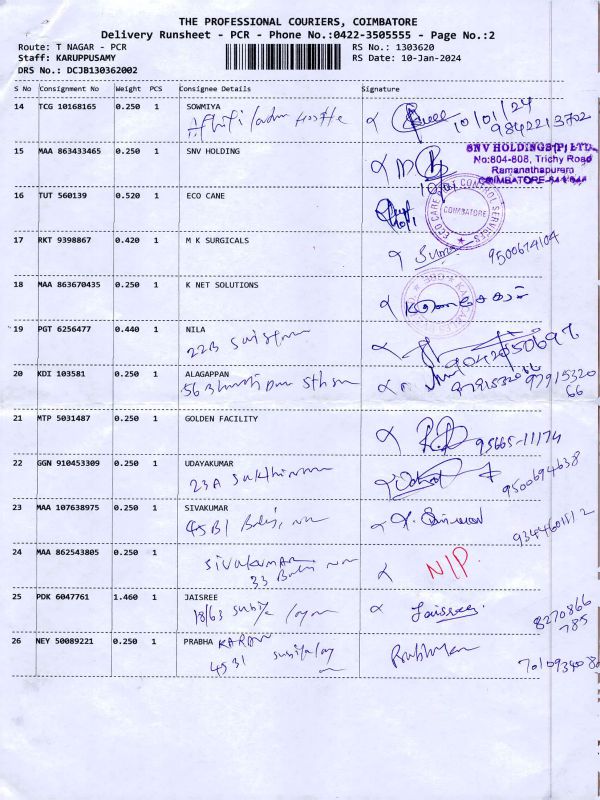 THE PROFESSIONAL COURIERS, COIMBATORE
Delivery Runsheet - PCR - Phone No.:0422-3505555 - Page No.:2
Route: T NAGAR - PCR
RS No.: 1303620
Staff: KARUPPUSAMY
RS Date: 10-Jan-2024
DRS No.: DCJB130362002
S No Consignment No Weight PCS Consignee Details Signature
14 TCG 10168165 0.250 1 SOWMIYA
10/01/24
9842213702
15 MAA 863433465 0.250 1 SNV HOLDING
SNV HOLDINGS (P) LTD.
No:804-808, Trichy Road
Ramanathapuram
COIMBATORE
16 TUT 560139 0.520 1 ECO CANE
ECO CARE CONTROL SERVICES
COIMBATORE
17 RKT 9398867 0.420 1 M K SURGICALS
9500674104
18 MAA 863670435 0.250 1 K NET SOLUTIONS
19 PGT 6256477 0.440 1 NILA
22B
9042350697
20 KDI 103581 0.250 1 ALAGAPPAN
56
9791532066
9791532066
21 MTP 5031487 0.250 1 GOLDEN FACILITY
95665-11174
22 GGN 910453309 0.250 1 UDAYAKUMAR
23A
9500694638
23 MAA 107638975 0.250 1 SIVAKUMAR
45 B1
24 MAA 862543805 0.250 1
SIVAKUMAR
33
N/P
25 PDK 6047761 1.460 1 JAISREE
18/63
Jaisree
8270866
785
26 NEY 50089221 0.250 1 PRABHA KARAN
45 31
Prabhakar